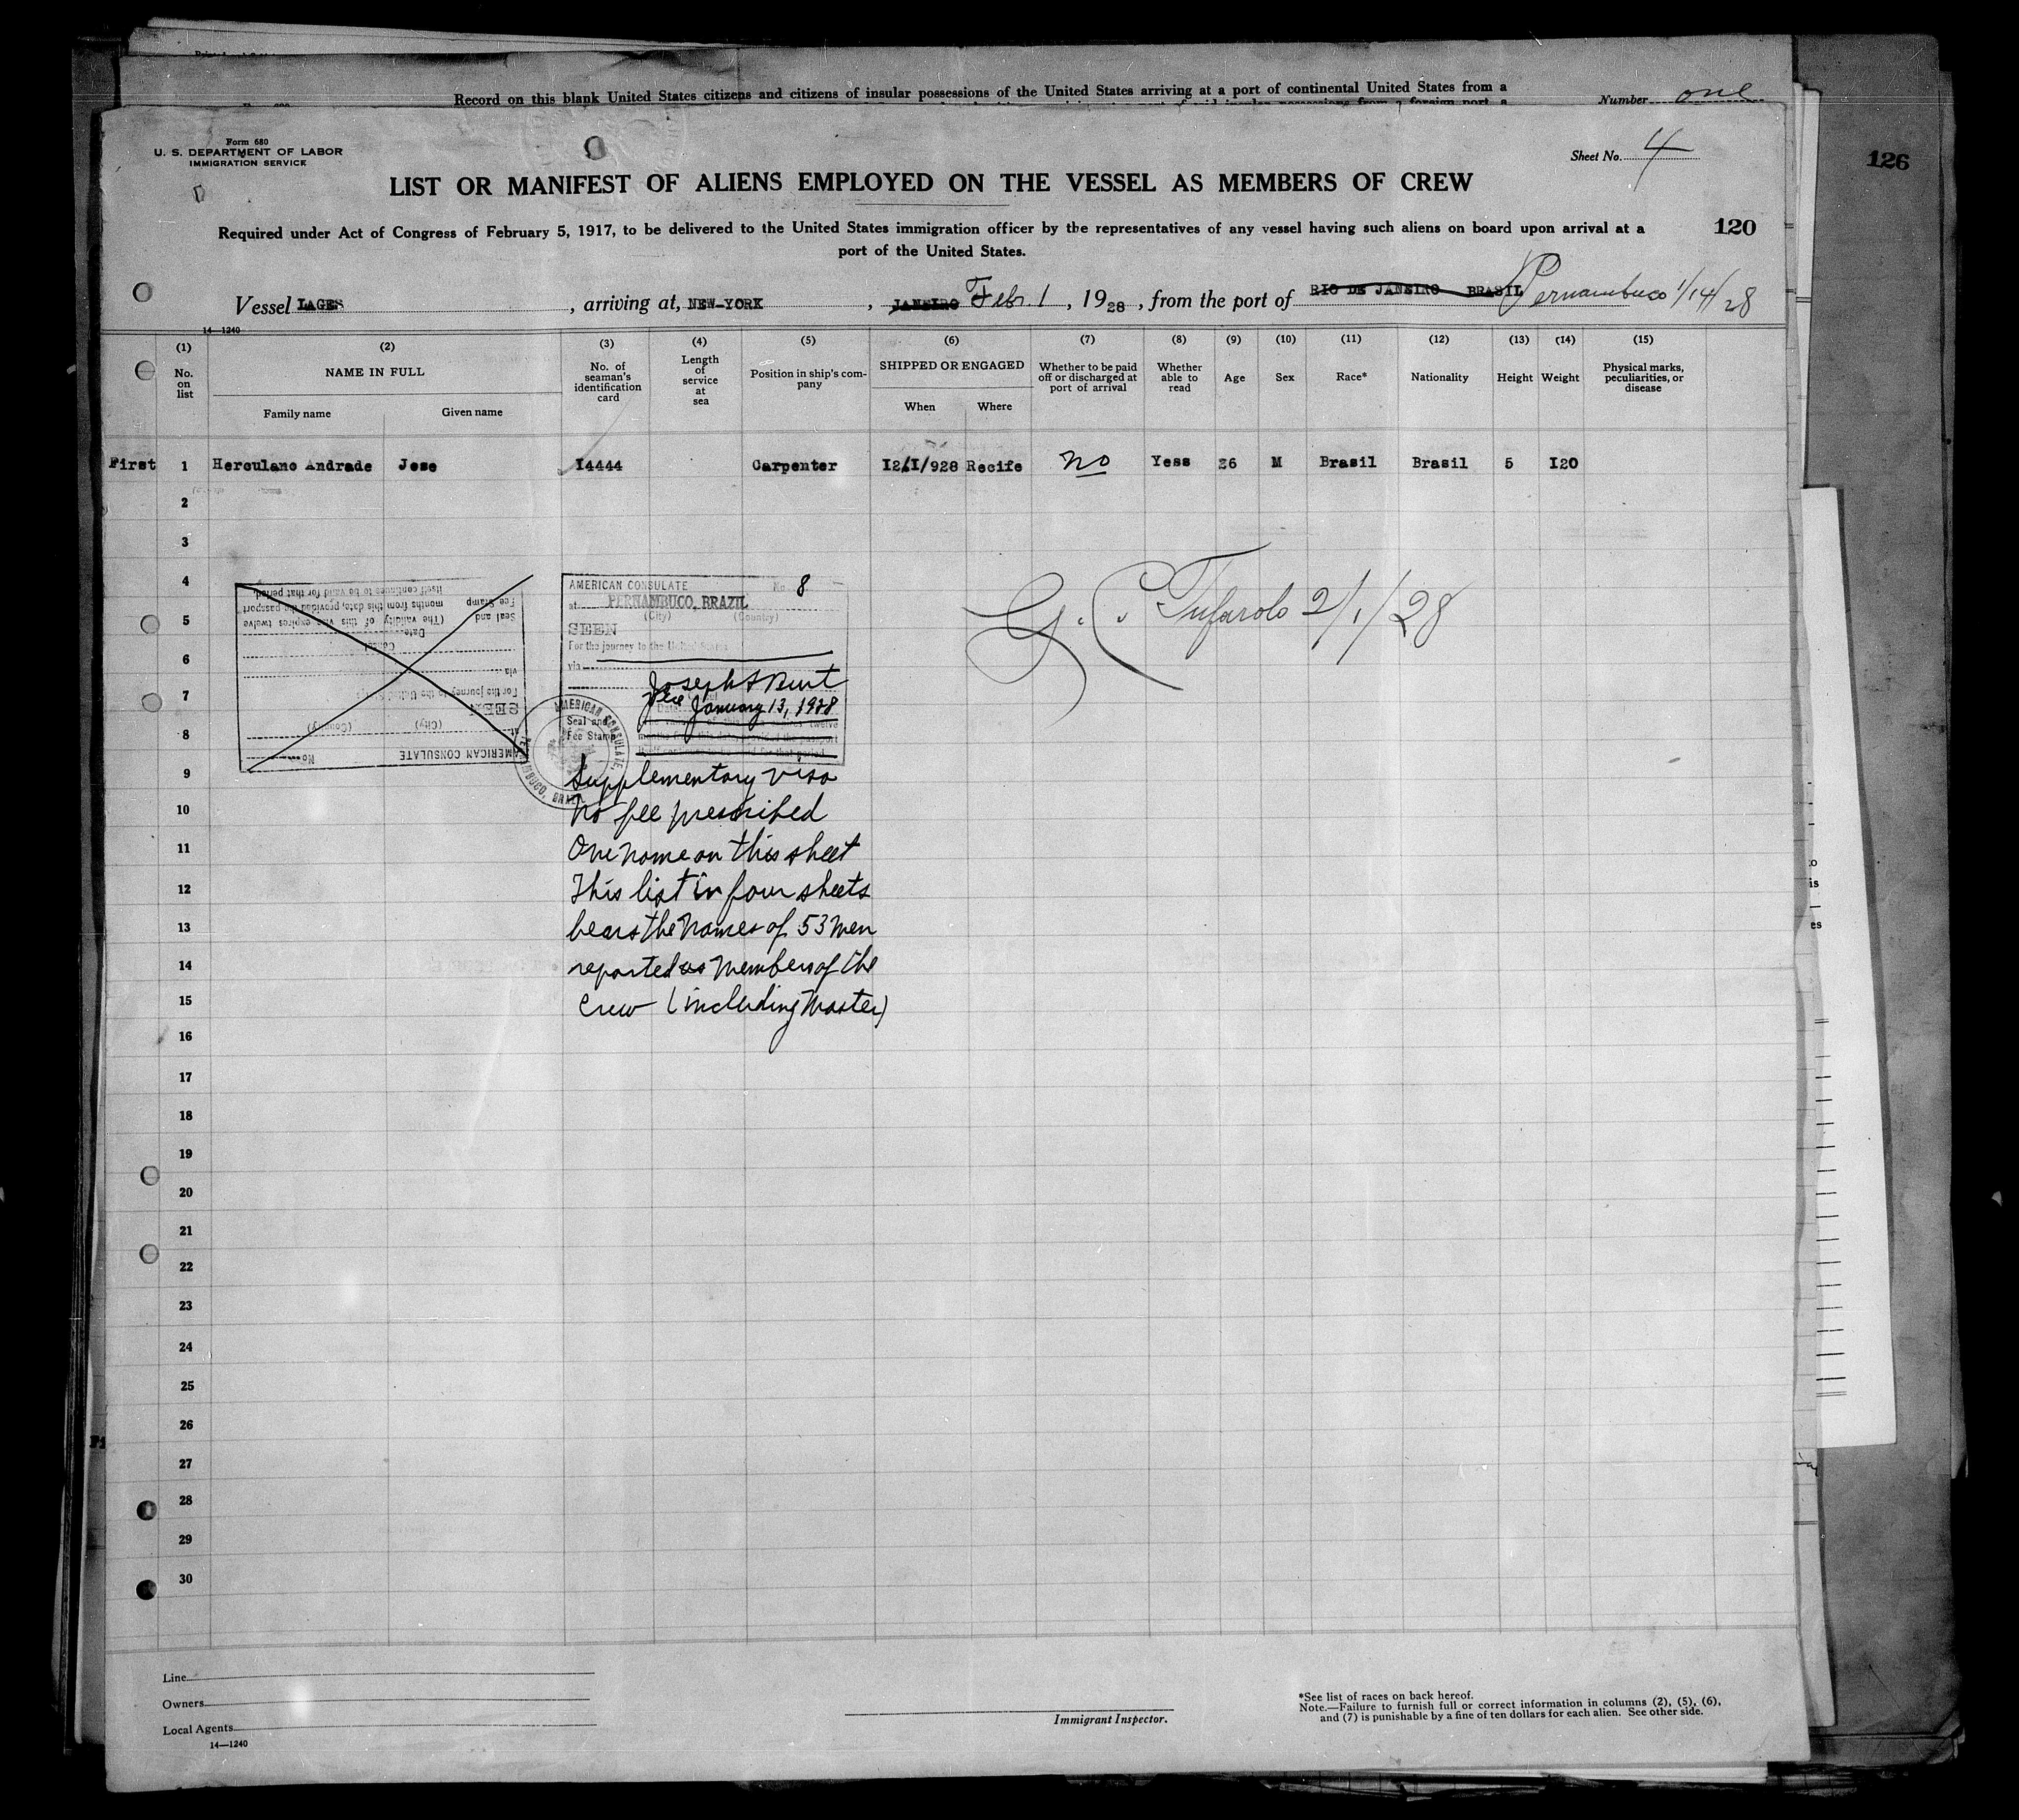 Record on this blank United States citizens and citizens of insular possessions of the United States arriving at a port of continental United States from a
Number one
Form 680
U. S. DEPARTMENT OF LABOR
IMMIGRATION SERVICE
Sheet No. 4
126
LIST OR MANIFEST OF ALIENS EMPLOYED ON THE VESSEL AS MEMBERS OF CREW
Required under Act of Congress of February 5, 1917, to be delivered to the United States immigration officer by the representatives of any vessel having such aliens on board upon arrival at a
port of the United States.
120
Vessel LAGES, arriving at, NEW-YORK, JANEIRO Febr 1, 1928, from the port of RIO DE JANEIRO BRASIL Pernambuco 1/14/28
14—1240
(1) (2) (3) (4) (5) (6) (7) (8) (9) (10) (11) (12) (13) (14) (15)
No. on list
NAME IN FULL
Family name Given name
No. of seaman's identification card
Length of service at sea
Position in ship's company
SHIPPED OR ENGAGED
When Where
Whether to be paid off or discharged at port of arrival
Whether able to read
Age
Sex
Race*
Nationality
Height
Weight
Physical marks, peculiarities, or disease
First 1 Herculano Andrade Jose 14444 Carpenter I2/I/928 Recife no Yess 26 M Brasil Brasil 5 I20
2
3
4
5
6
7
8
9
10
11
12
13
14
15
16
17
18
19
20
21
22
23
24
25
26
27
28
29
30
AMERICAN CONSULATE No.
at
(City) (Country)
SEEN
For the journey to the United States
via
Consul
Date
(The validity of this visa expires twelve
months from this date, provided the passport
itself continues to be valid for that period.
Seal and
Fee Stamp
AMERICAN CONSULATE No 8
at PERNAMBUCO, BRAZIL
(City) (Country)
SEEN
For the journey to the United States
via
Date January 13, 1928
Seal and
Fee Stamp
AMERICAN CONSULATE
Supplementary visa
No fee prescribed
One name on this sheet
This list in four sheets
bears the names of 53 men
reported as members of the
crew (including Master)
2/1/28
Line
Owners
Local Agents
14—1240
Immigrant Inspector.
*See list of races on back hereof.
Note.—Failure to furnish full or correct information in columns (2), (5), (6),
and (7) is punishable by a fine of ten dollars for each alien. See other side.